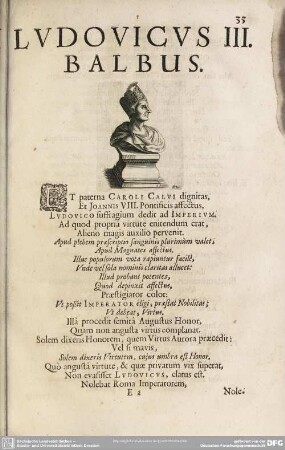 35
LVDOVICVS III.
BALBUS.
ET paterna CAROLI CALVI dignitas,
Et JOANNIS VIII. Pontificis affectus,
LUDOVICO suffragium dedit ad IMPERIUM.
Ad quod propria virtute enitendum erat,
Alieno magis auxilio pervenit.
Apud plebem præscriptio sanguinis plurimùm valet;
Apud Magnates affectus,
Illuc populorum vota rapiuntur facilè,
Unde vel sola nominis claritas allucet:
Illud probant potentes,
Quod depinxit affectus,
Præstigiator color:
Ut possit IMPERATOR eligi, præstat Nobilitas;
Ut debeat, Virtus.
Illâ procedit semitâ Augustus Honor,
Quam non angusta virtus complanat.
Solem dixeris Honorem, quem Virtus Aurora præcedit:
Vel si mavis,
Solem dixeris Virtutem, cujus umbra est Honor.
Quò angustâ virtute, & quæ privatum vix superat,
Non evasisset LUDOVICUS, elatus est.
Nolebat Roma Imperatorem,
E 2 Nole-